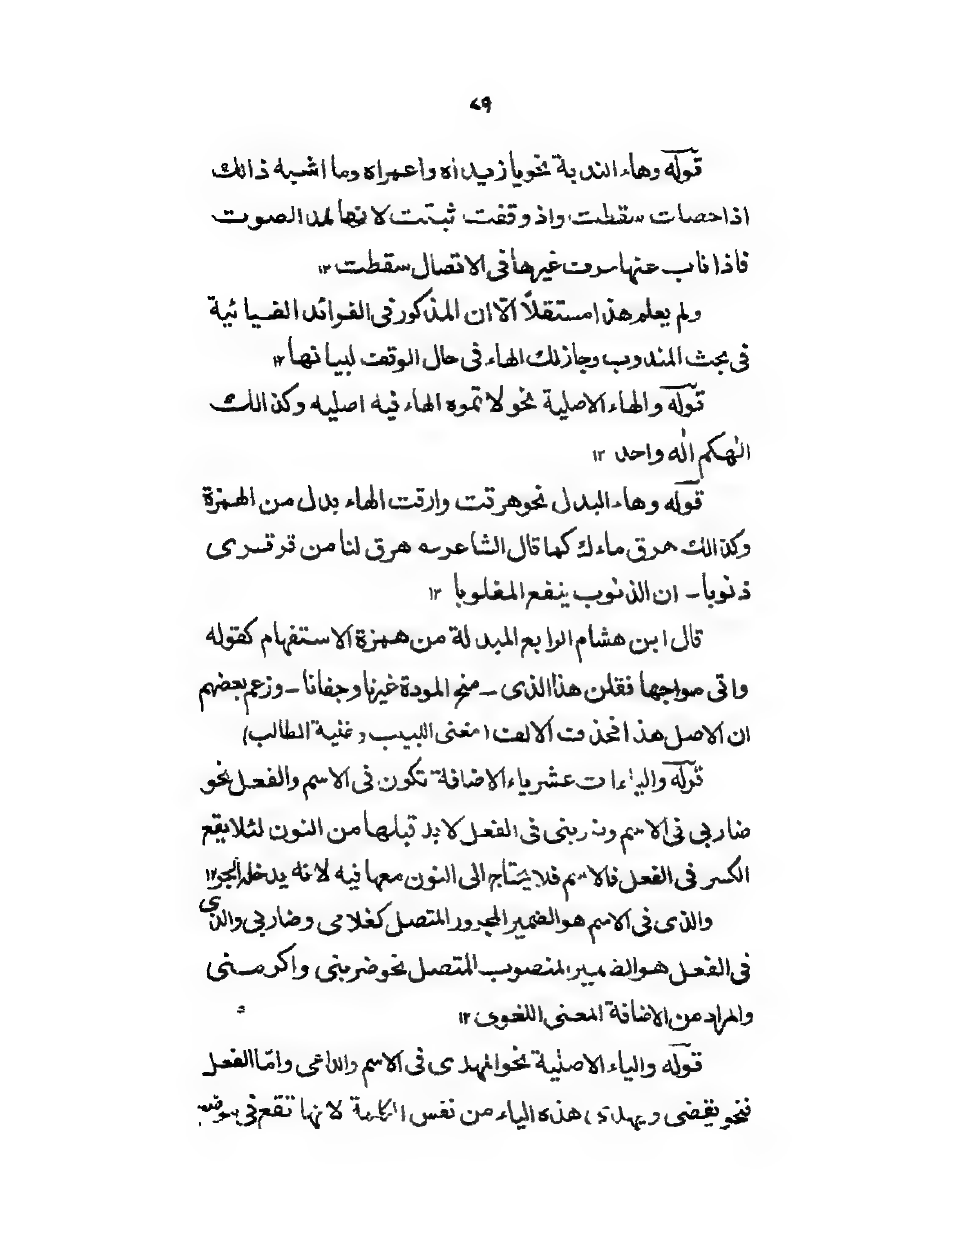 ٨٩
قوله وهاء الندبة نحو يا زيداه واعمراه وما اشبه ذالك
اذا حصات سقطت واذ وقفت ثبتت لانها لمد الصوت
فاذا ناب عنها سوت غيرها فى الاتصال سقطت ١٢
ولم يعلم هذا مستقلاً الّا ان المذكور فى الفوائد الضيائية
فى بحث المندوب وجاز لك الهاء فى حال الوقف لبيانها ١٢
قوله والهاء الاصلية نحو لا تموه الهاء فيه اصليه وكذالك
الٰهكم الٰه واحد ١٢
قوله وهاء البدل نحو هرقت وارقت الهاء بدل من الهمزة
وكذالك هرق ماءك كما قال الشاعر سه هرق لنا من قرقرى
ذنوبا - ان الذنوب ينفع المغلوبا ١٢
قال ابن هشام الرابع المبدلة من همزة الاستفهام كقوله
واتى صواجها فقلن هذا الذى - منح المودة غيرنا وجفانا - وزعم بعضهم
ان الاصل هذا فحذفت الالف (مغنى اللبيب و غنية الطالب)
قوله والياءات عشر ياء الاضافة تكون فى الاسم والفعل نحو
ضاربى فى الاسم وضربنى فى الفعل لابد قبلها من النون لئلا يقع
الكسر فى الفعل فالاسم فلا يحتاج الى النون معها فيه لانه يدخله الجر ١٢
والذى فى الاسم هو الضمير المجرور المتصل كغلامى وضاربى والذى
فى الفعل هو الضمير المنصوب المتصل نحو ضربنى واكرمنى
والمراد من الاضافة المعنى اللغوى ١٢
قوله والياء الاصلية نحو المهدى فى الاسم والداعى وامّا الفعل
فنحو يقضى ويهدى هذه الياء من نفس الكلمة لانها تقع فى